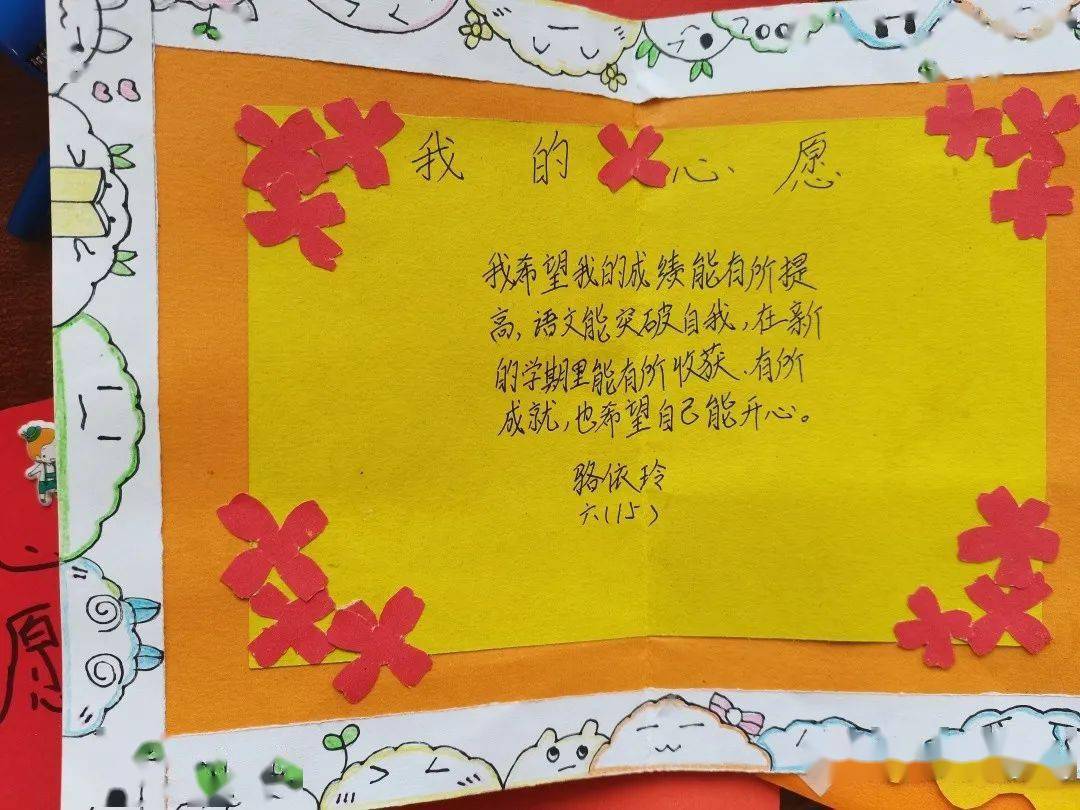 我的心愿
我希望我的成绩能有所提
高,语文能突破自我,在新
的学期里能有所收获、有所
成就,也希望自己能开心。
骆依玲
六(15)
愿